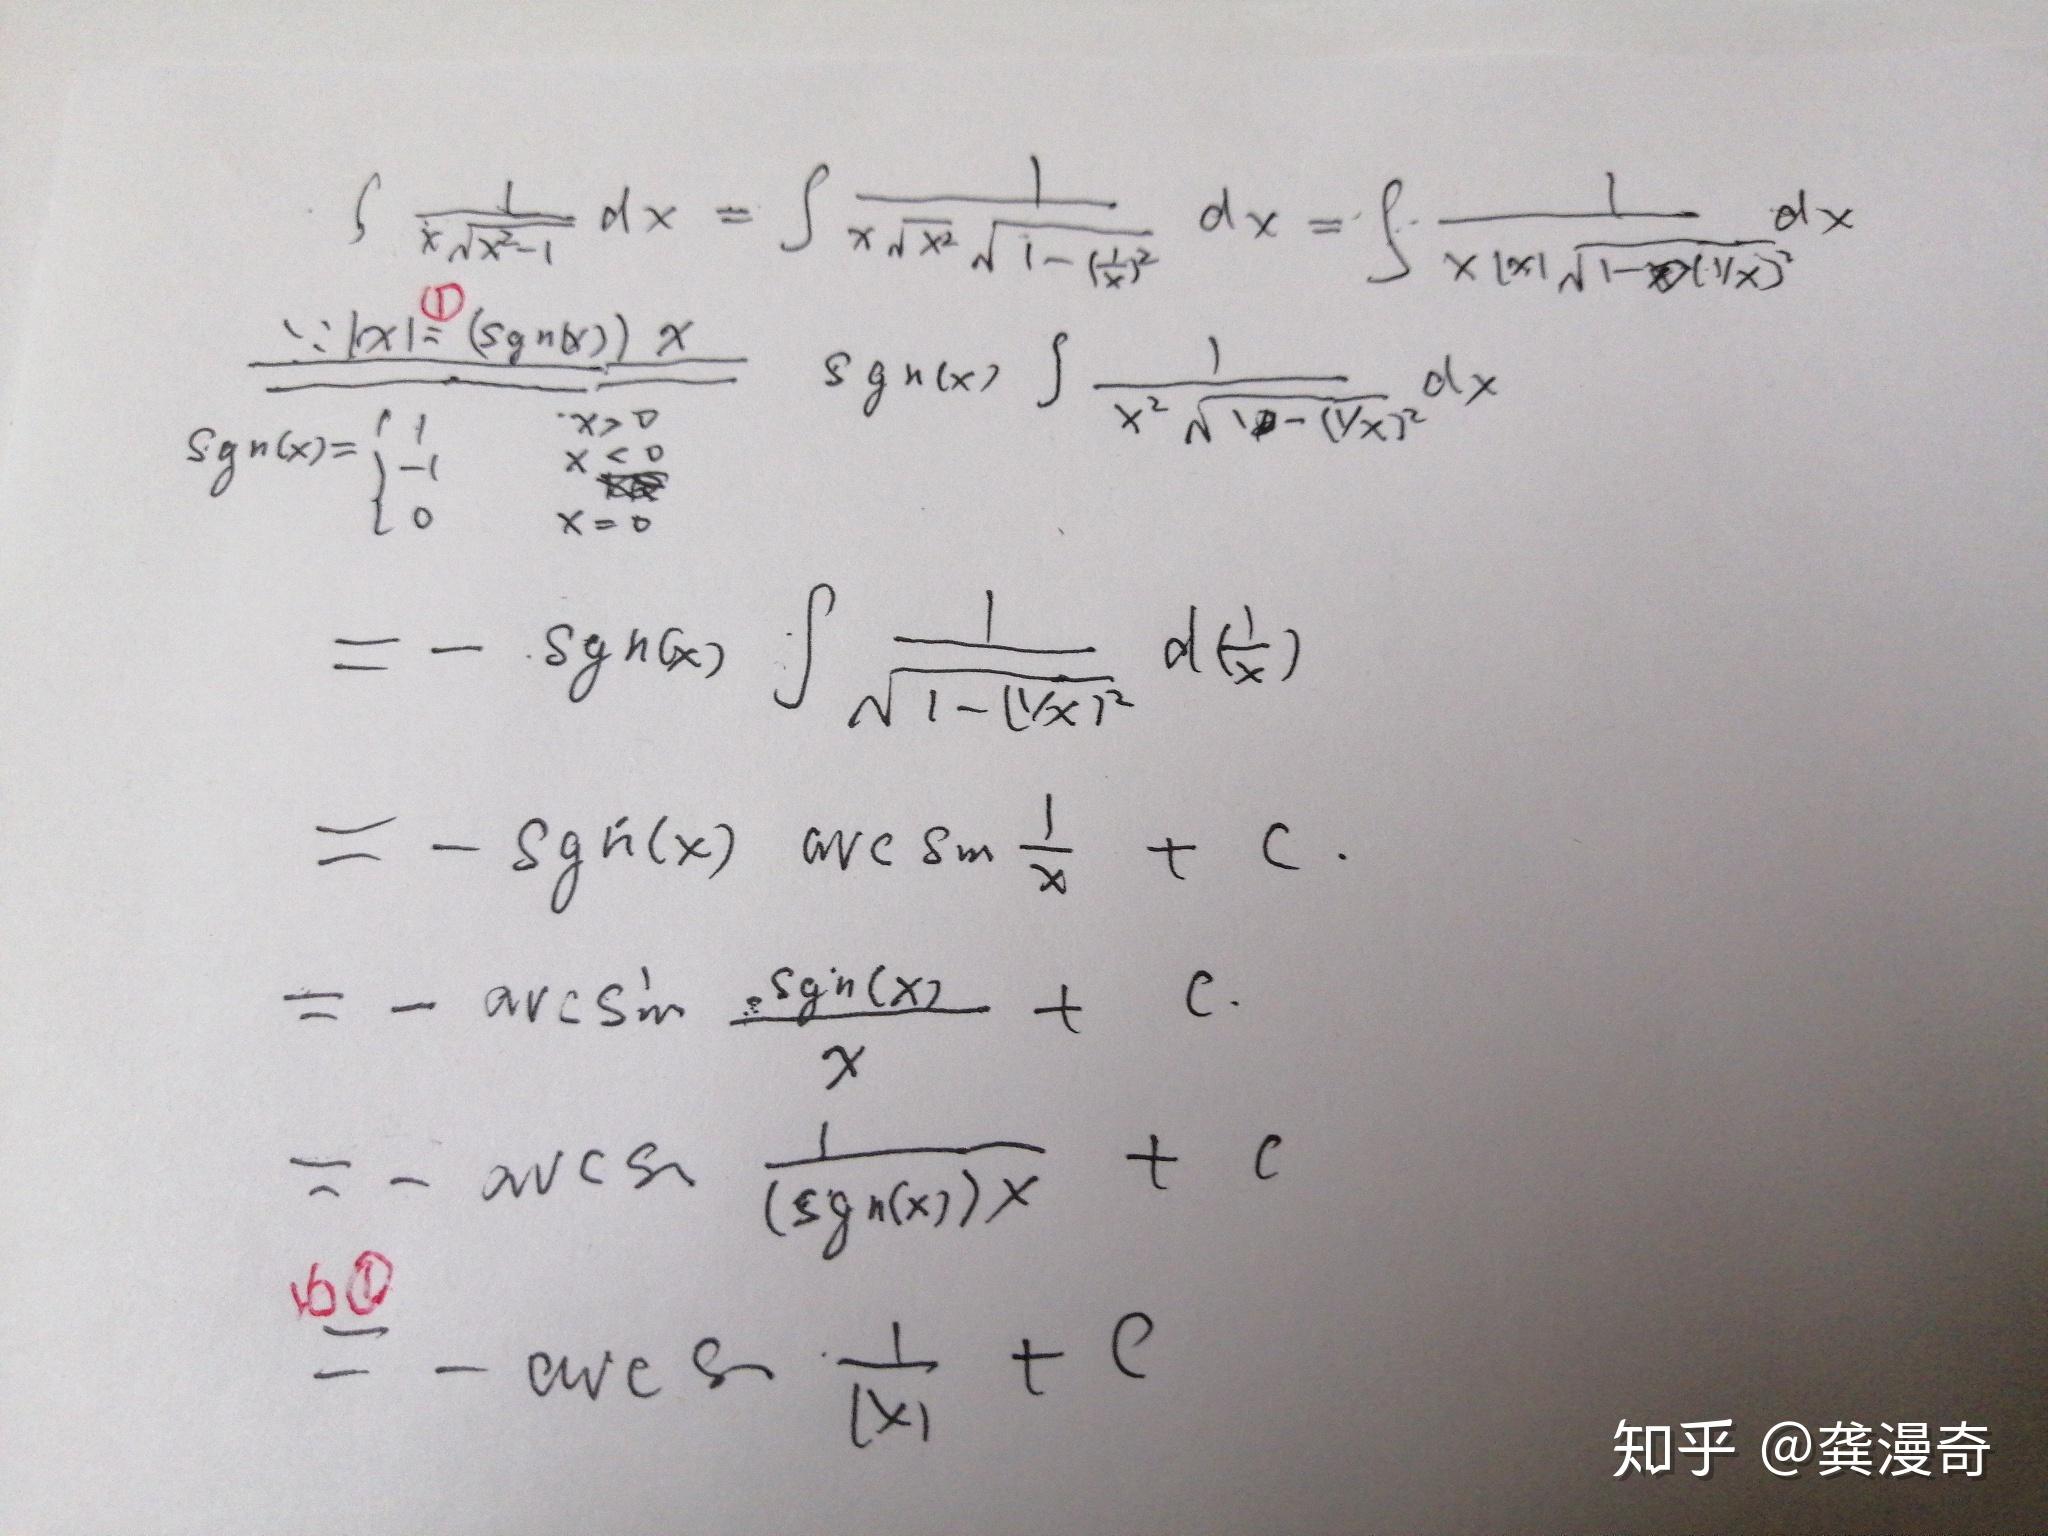 ∫ 1/(x√(x²-1)) dx = ∫ 1/(x√x² √(1-(1/x)²)) dx = ∫ 1/(x|x|√(1-(1/x)²)) dx
①
∵|x|=(sgn(x)) x sgn(x) ∫ 1/(x²√(1-(1/x)²)) dx
sgn(x)= { 1 x>0
-1 x<0
0 x=0
= - sgn(x) ∫ 1/√(1-(1/x)²) d(1/x)
= - sgn(x) arcsin 1/x + C.
= - arcsin sgn(x)/x + C.
= - arcsin 1/((sgn(x))x) + C
①
= - arcsin 1/|x| + C
知乎 @龚漫奇